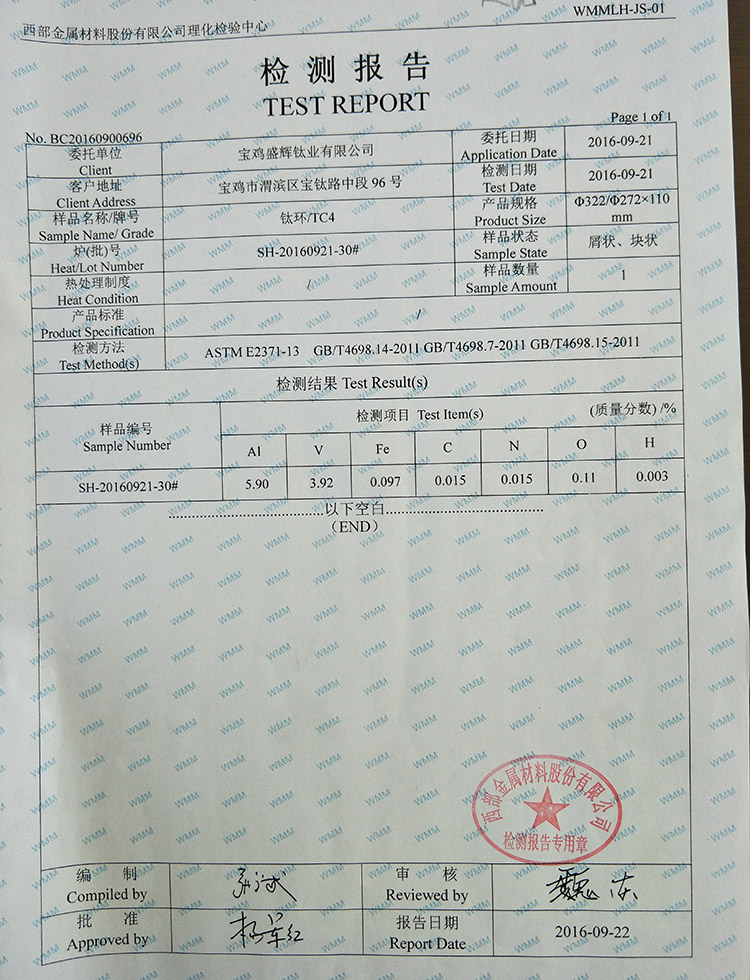 WMMLH-JS-01
西部金属材料股份有限公司理化检验中心
检 测 报 告
TEST REPORT
No. BC20160900696
Page 1 of 1
委托单位
Client
宝鸡盛辉钛业有限公司
委托日期
Application Date
2016-09-21
客户地址
Client Address
宝鸡市渭滨区宝钛路中段 96 号
检测日期
Test Date
2016-09-21
样品名称/牌号
Sample Name/ Grade
钛环/TC4
产品规格
Product Size
Φ322/Φ272×110
mm
炉(批)号
Heat/Lot Number
SH-20160921-30#
样品状态
Sample State
屑状、块状
热处理制度
Heat Condition
/
样品数量
Sample Amount
1
产品标准
Product Specification
/
检测方法
Test Method(s)
ASTM E2371-13 GB/T4698.14-2011 GB/T4698.7-2011 GB/T4698.15-2011
检测结果 Test Result(s)
样品编号
Sample Number
检测项目 Test Item(s) (质量分数) /%
Al V Fe C N O H
SH-20160921-30# 5.90 3.92 0.097 0.015 0.015 0.11 0.003
以下空白
（END）
西部金属材料股份有限公司
检测报告专用章
编 制
Compiled by
审 核
Reviewed by
批 准
Approved by
报告日期
Report Date
2016-09-22